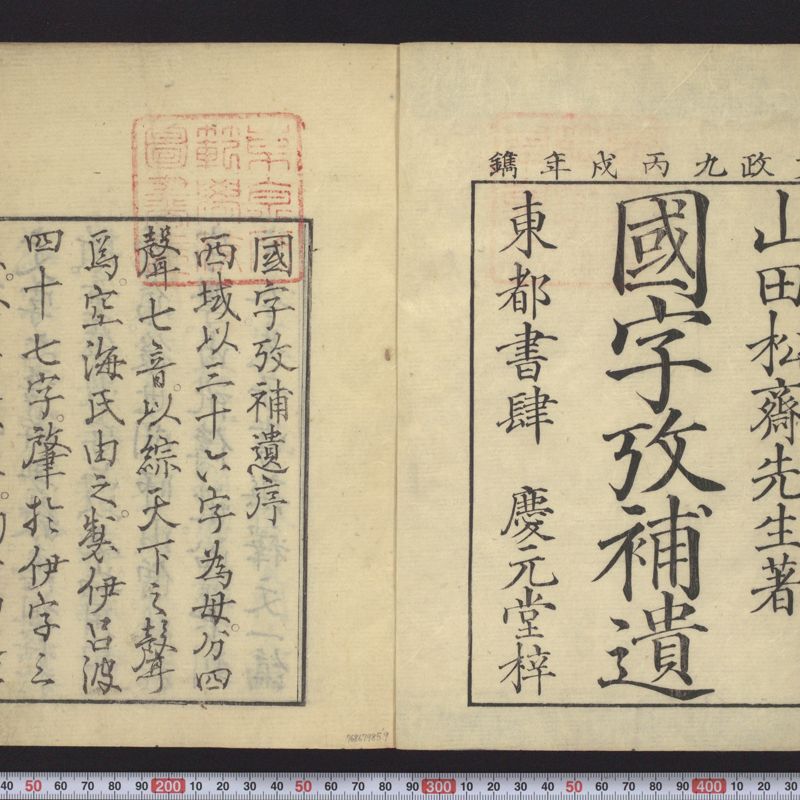 政九丙戌年鐫
山田松齋先生著
國字攷補遺
東都書肆　慶元堂梓
國字攷補遺序
西域以三十六字為母分四
聲七音以綜天下之聲
爲空海氏由之製伊呂波
四十七字肇於伊字之
768679859
40 50 60 70 80 90 200 10 20 30 40 50 60 70 80 90 300 10 20 30 40 50 60 70 80 90 400 10 20 30